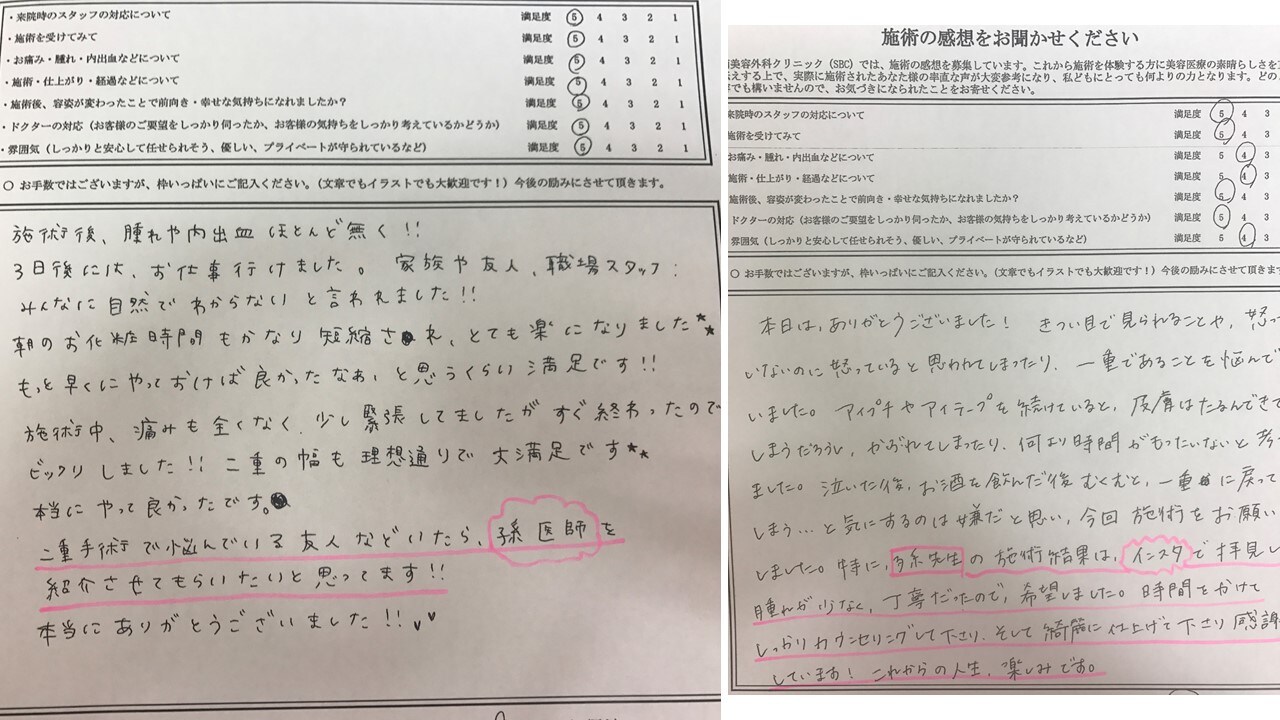 ・来院時のスタッフの対応について 満足度 5 4 3 2 1
・施術を受けてみて 満足度 5 4 3 2 1
・お痛み・腫れ・内出血などについて 満足度 5 4 3 2 1
・施術・仕上がり・経過などについて 満足度 5 4 3 2 1
・施術後、容姿が変わったことで前向き・幸せな気持ちになれましたか? 満足度 5 4 3 2 1
・ドクターの対応(お客様のご要望をしっかり伺ったか、お客様の気持ちをしっかり考えているかどうか) 満足度 5 4 3 2 1
・雰囲気(しっかりと安心して任せられそう、優しい、プライベートが守られているなど) 満足度 5 4 3 2 1
○ お手数ではございますが、枠いっぱいにご記入ください。(文章でもイラストでも大歓迎です!)今後の励みにさせて頂きます。
施術後、腫れや内出血ほとんど無く!!
3日後には、お仕事行けました。家族や友人、職場スタッフ:
みんなに自然でわからないと言われました!!
朝のお化粧時間もかなり短縮され、とても楽になりました★★
もっと早くにやっておけば良かったなぁ、と思うくらい満足です!!
施術中、痛みも全くなく、少し緊張してましたがすぐ終わったので
ビックリしました!!二重の幅も理想通りで大満足です★★
本当にやって良かったです。
二重手術で悩んでいる友人などいたら、孫医師を
紹介させてもらいたいと思ってます!!
本当にありがとうございました!!♥♥
施術の感想をお聞かせください
美容外科クリニック(SBC)では、施術の感想を募集しています。これから施術を体験する方に美容医療の素晴らしさを
伝えする上で、実際に施術されたあなた様の率直な声が大変参考になり、私どもにとっても何よりの力となります。どの
でも構いませんので、お気づきになられたことをお寄せください。
来院時のスタッフの対応について 満足度 5 4 3
施術を受けてみて 満足度 5 4 3
お痛み・腫れ・内出血などについて 満足度 5 4 3
施術・仕上がり・経過などについて 満足度 5 4 3
施術後、容姿が変わったことで前向き・幸せな気持ちになれましたか? 満足度 5 4 3
ドクターの対応(お客様のご要望をしっかり伺ったか、お客様の気持ちをしっかり考えているかどうか) 満足度 5 4 3
雰囲気(しっかりと安心して任せられそう、優しい、プライベートが守られているなど) 満足度 5 4 3
○ お手数ではございますが、枠いっぱいにご記入ください。(文章でもイラストでも大歓迎です!)今後の励みにさせて頂きます
本日は、ありがとうございました! きつい目で見られることや、怒っ
いないのに怒っていると思われてしまったり、一重であることを悩んで
いました。アイプチやアイテープを続けていると、皮膚はたるんできて
しまうだろうし、かぶれてしまったり、何より時間がもったいないと考
ました。泣いた後、お酒を飲んだ後むくむと、一重に戻って
しまう…と気にするのは嫌だと思い、今回施術をお願い
しました。特に、孫先生の施術結果は、インスタで拝見し
腫れが少なく、丁寧だったので、希望しました。時間をかけて
しっかりカウンセリングして下さり、そして綺麗に仕上げて下さり感謝
しています!これからの人生、楽しみです。